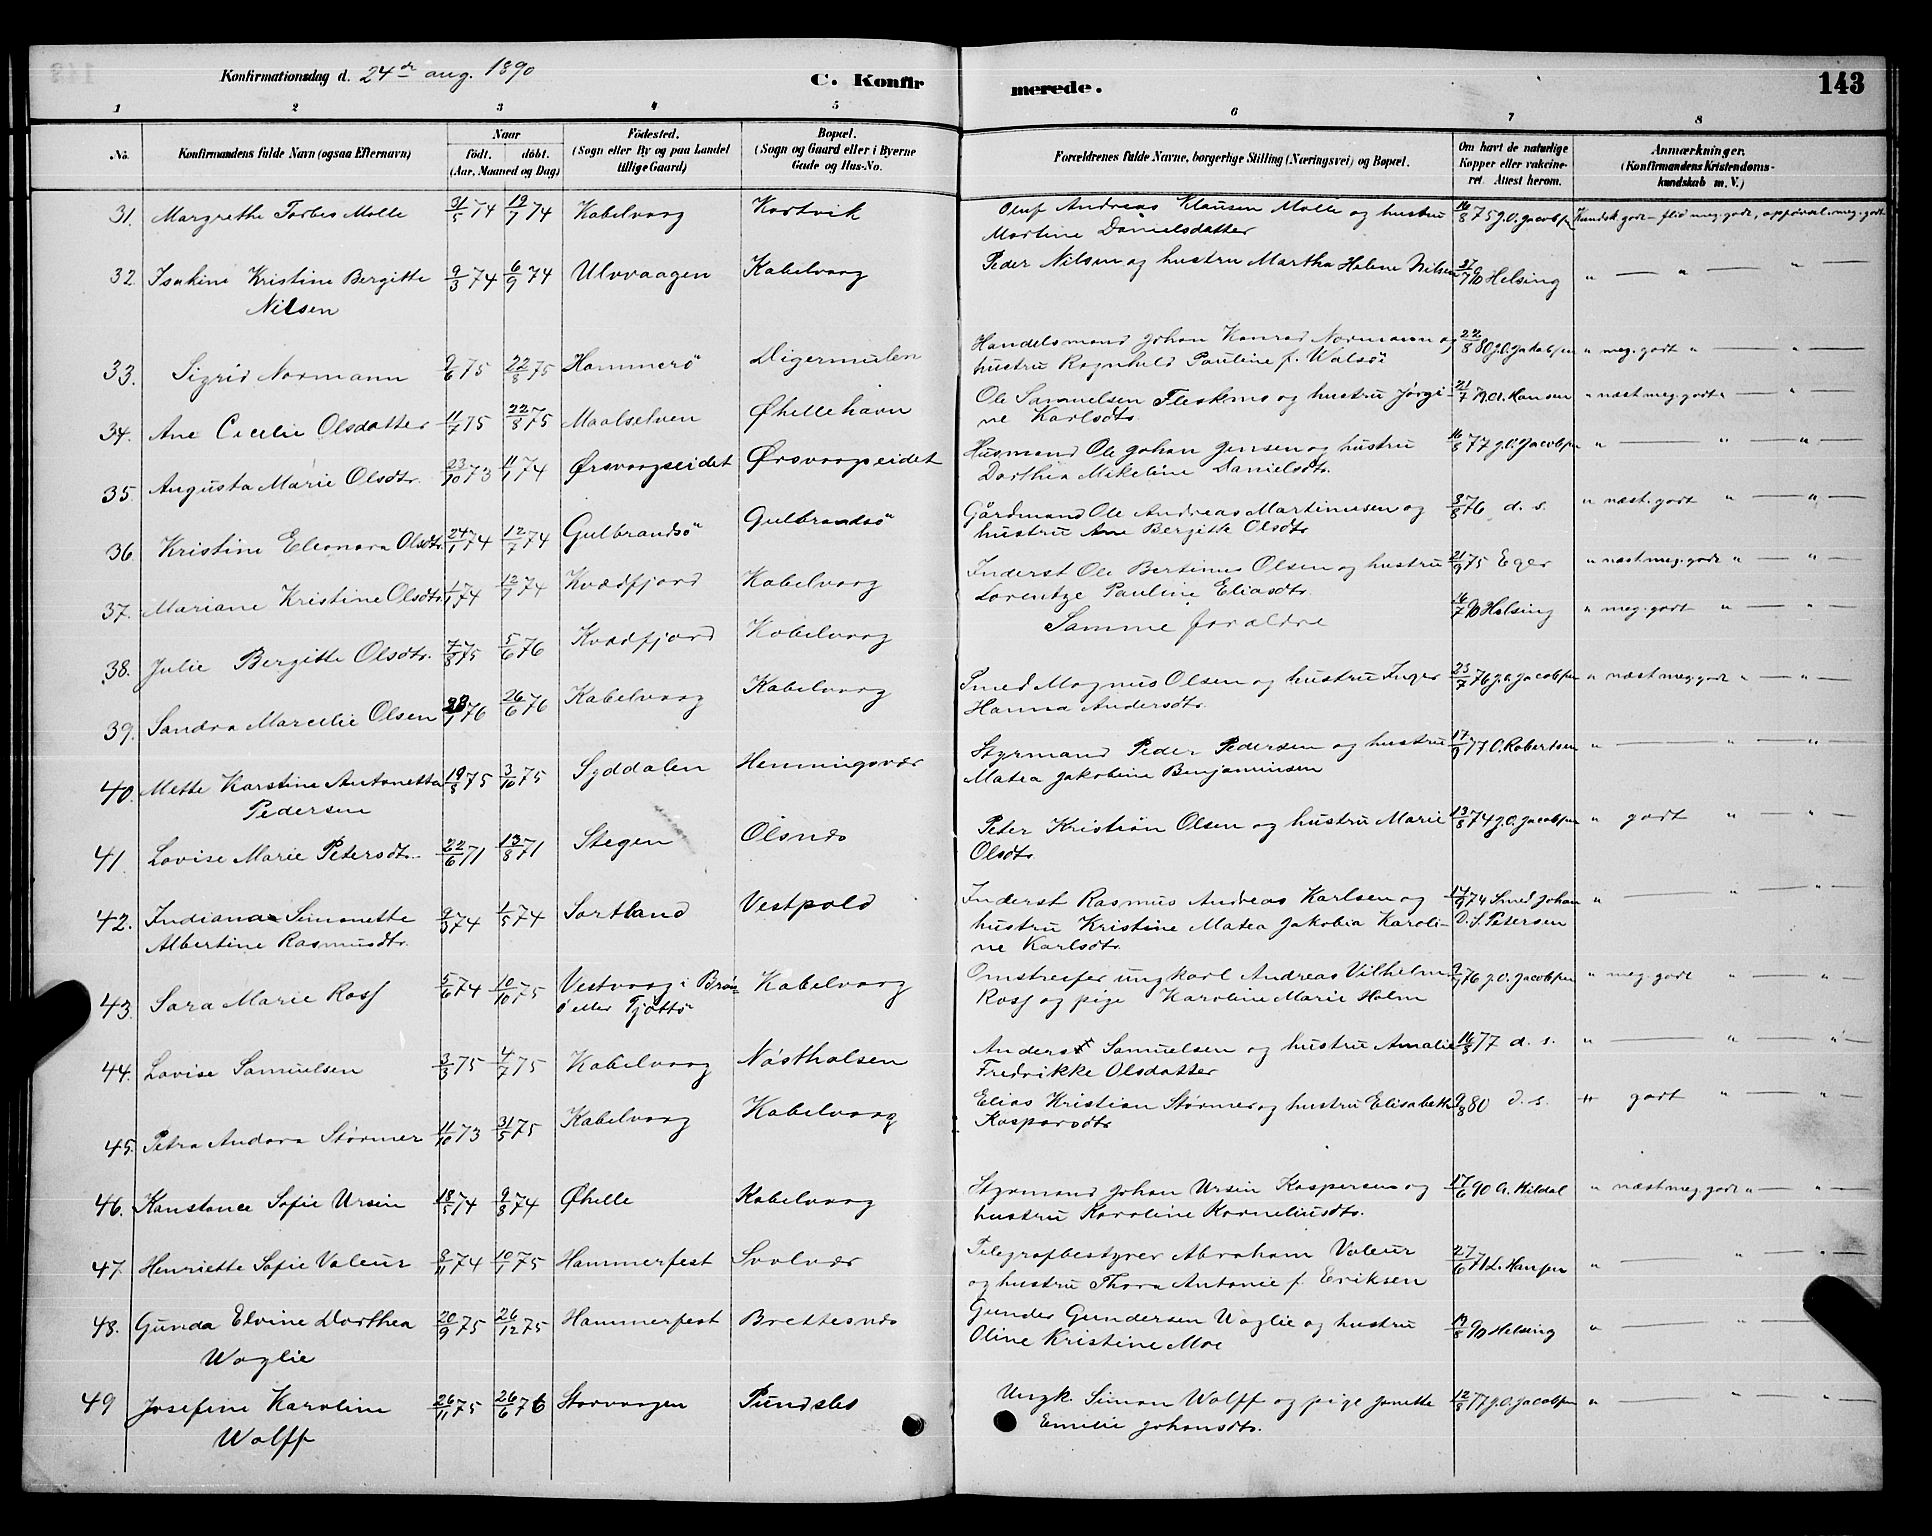 Konfirmationsdag d. 24de aug. 1890
C. Konfirmerede.
143
1 2 3 4 5 6 7 8
No.
Konfirmandens fulde Navn (ogsaa Efternavn)
Naar
födt. döbt.
(Aar, Maaned og Dag)
Födested.
(Sogn eller By og paa Landet
tillige Gaard)
Bopæl.
(Sogn og Gaard eller i Byerne
Gade og Hus-No.
Forældrenes fulde Navne, borgerlige Stilling (Næringsvei) og Bopæl.
Om havt de naturlige
Kopper eller vakcine-
ret. Attest herom.
Anmærkninger.
(Konfirmandens Kristendoms-
kundskab m. V.)
31. Margrethe Torbes Molle 31/5 74 19/7 74 Kabelvaag Kortvik Oluf Andreas Klausen Molle og hustru 16/8 75 J.O. Jacobsen Kundsk. godt - flid meg. godt, opførsel meg. godt
Martine Danielsdatter
32. Isakine Kristine Bergitte 9/3 74 6/9 74 Ulvvaagen Kabelvaag Peder Nilsen og hustru Martha Helene Nilsen 27/7 90 Helsing " — " — " —
Nilsen
33. Sigrid Normann 9/6 75 22/8 75 Hammerö Digermulen Handelsmand Johan Konrad Normann og 22/8 80 J.O. Jakobsen " meg. godt " — " —
hustru Ragnhild Pauline f. Walsö
34. Ane Cecelie Olsdatter 11/7 75 22/8 75 Maalselven Øhellehavn Ole Samuelsen Fleskmo og hustru Jørgi- 21/7 79 Hansen " næst meg. godt " — " —
ne Karlsdtr.
35. Augusta Marie Olsdtr. 23/10 73 11/1 74 Ørsvaagseidet Ørsvaagseidet Husmand Ole Johan Jensen og hustru 16/8 77 J.O. Jacobsen " — " — " —
Dorthea Mikeline Danielsdtr.
36. Kristine Eleonora Olsdtr. 24/1 74 12/7 74 Gulbrandsö Gulbrandsö Gårdmand Ole Andreas Martinusen og 3/8 76 d. s. " næst. godt " — " —
hustru Ane Bergitte Olsdtr
37. Mariane Kristine Olsdtr. 1/1 74 12/7 74 Kvædfjord Kabelvaag Inderst Ole Bertinus Olsen og hustru 21/9 75 Eger " næst meg. godt " — " —
Lorentze Pauline Eliasdtr.
38. Julie Bergitte Olsdtr. 7/8 75 5/6 76 Kvædfjord Kabelvaag Samme forældre 16/7 90 Helsing " meg. godt " — " —
39. Sandra Marcelie Olsen 23/1 76 26/6 76 Kabelvaag Kabelvaag Smed Magnus Olsen og hustru Inger 23/7 76 J.O. Jacobsen " næst meg. godt " — " —
Hanna Andersdtr.
40. Mette Karstine Antonetta 19/8 75 3/10 75 Syddalen Henningsvær Styrmand Peder Pedersen og hustru 17/9 77 O. Robertsen " — " —
Pedersen Matea Jakobine Benjaminsen
41. Lovise Marie Petersdtr. 22/6 71 13/8 71 Stegen Ölsnes Peter Kristian Olsen og hustru Marie 13/8 74 J.O. Jacobsen " godt " — " —
Olsdtr.
42. Indiana Simonette 9/3 74 1/5 74 Sortland Vestpold Inderst Rasmus Andreas Karlsen og 14/9 74 Smed Johan " — " — " —
Albertine Rasmusdtr. hustru Kristine Matea Jakobia Karoli- D. S. Petersen
ne Karlsdtr.
43. Sara Marie Ross 5/6 74 10/10 75 Vestvaag i Brön- Kabelvaag Omstreifer ungkarl Andreas Vilhelm 9/7 76 J.O. Jacobsen " meg. godt " — "
ö eller Tjöttö Ross og pige Karoline Marie Holm
44. Lovise Samuelsen 3/3 75 4/7 75 Kabelvaag Nøstholsen Anders Samuelsen og hustru Amalie 16/8 77 d. s. " — " — " —
Fredrikke Olsdatter
45. Petra Andora Størmer 11/10 73 31/5 75 Kabelvaag Kabelvaag Elias Kristian Størmer og hustru Elisabeth 9/8 80 d. s. " godt " — "
Kasparsdtr
46. Konstance Sofie Ursin 18/5 74 9/8 74 Øhelle Kabelvaag Styrmand Johan Ursin Kaspersen og 17/6 90 A. Hildal " næst meg. godt " — " —
hustru Karoline Korneliusdtr.
47. Henriette Sofie Valeur 3/11 74 10/1 75 Hammerfest Svolvær Telegrafbestyrer Abraham Valeur 27/6 71 L. Hansen " — " — " —
og hustru Thora Antonie f. Eriksen
48. Gunda Elvine Dorthea 20/9 75 26/12 75 Hammerfest Brettesnes Gunder Gundersen Woglie og hustru 19/8 90 Helsing " — " —
Woglie Oline Kristine Moe
49 Josefine Karoline 26/11 75 26/6 76 Storvaagen Pundslet Ungk. Simon Wolff og pige Janette 12/8 77 J.O. Jacobsen " — " — " —
Wolff Emilie Johansdtr.